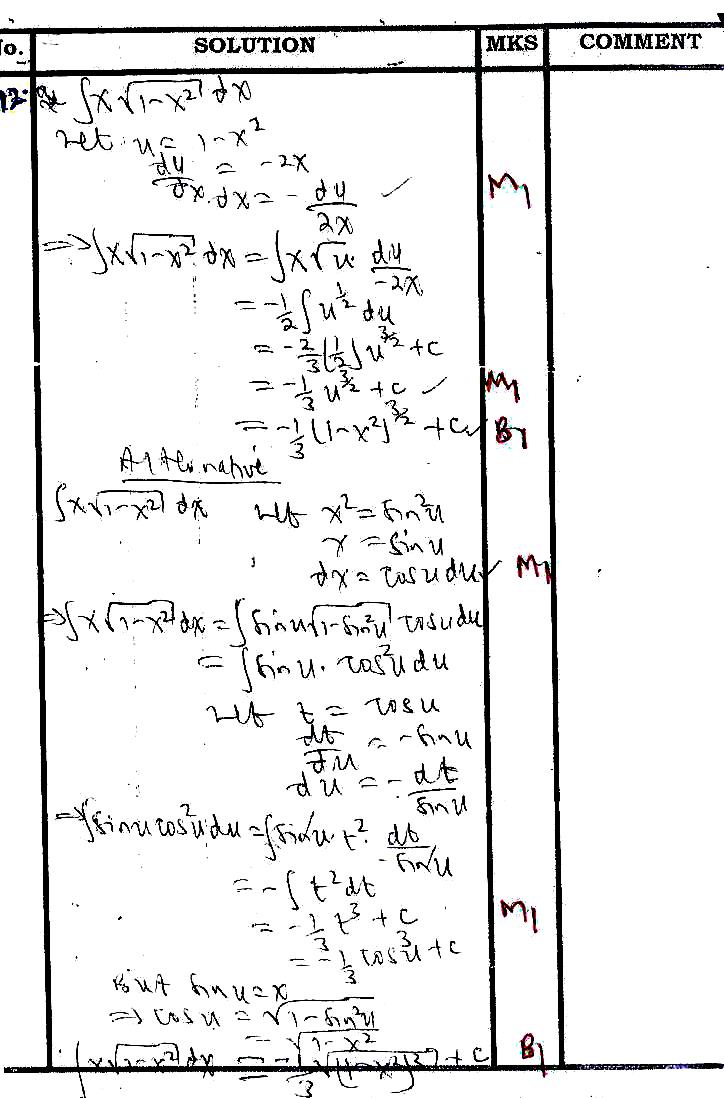 No. SOLUTION MKS COMMENT
12. ∫x√(1-x²) dx
Let u = 1-x²
du/dx = -2x
dx = -du/2x ✓ M1
=> ∫x√(1-x²) dx = ∫x√u · du/-2x
= -1/2 ∫u^(1/2) du
= -2/3 (1/2) u^(3/2) + c
= -1/3 u^(3/2) + c ✓ M1
= -1/3 (1-x²)^(3/2) + c ✓ B1
Alternative
∫x√(1-x²) dx Let x² = sin²u
x = sin u
dx = cos u du ✓ M1
=> ∫x√(1-x²) dx = ∫sin u √(1-sin²u) cos u du
= ∫sin u · cos²u du
Let t = cos u
dt/du = -sin u
du = -dt/sin u
=> ∫sin u cos²u du = ∫sin u · t² · dt/-sin u
= -∫t² dt
= -1/3 t³ + c M1
= -1/3 cos³u + c
But sin u = x
=> cos u = √(1-sin²u)
= √(1-x²)
∫x√(1-x²) dx = -1/3 √((1-x²)³) + c B1